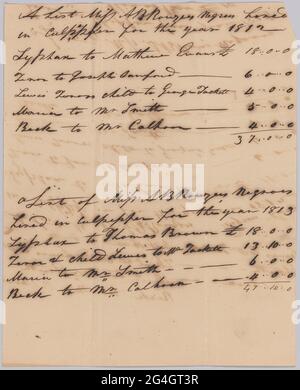 A List Miss AB Rouzees Negroes hired
in Culpepper for the year 1812
Lypshan to Mathew Evans £ 18..0..0
to Joseph 6..0..0
Lewis child to George Tackett 4..0..0
Maria to Mr Smith 5..0..0
Beck to Mr Calhoon 4..0..0
37..0..0
a List of Miss A B Rouzees Negroes
hired in Culpepper for the year 1813
Lypshan to Thomas Brown £ 18..0..0
& child Lewis to W Tackett 13..10..0
Maria to Mr Smith 6..0..0
Beck to Mr Calhoon 4..0..0
47..10..0
alamy
Image ID: 2G4GT3R
www.alamy.com